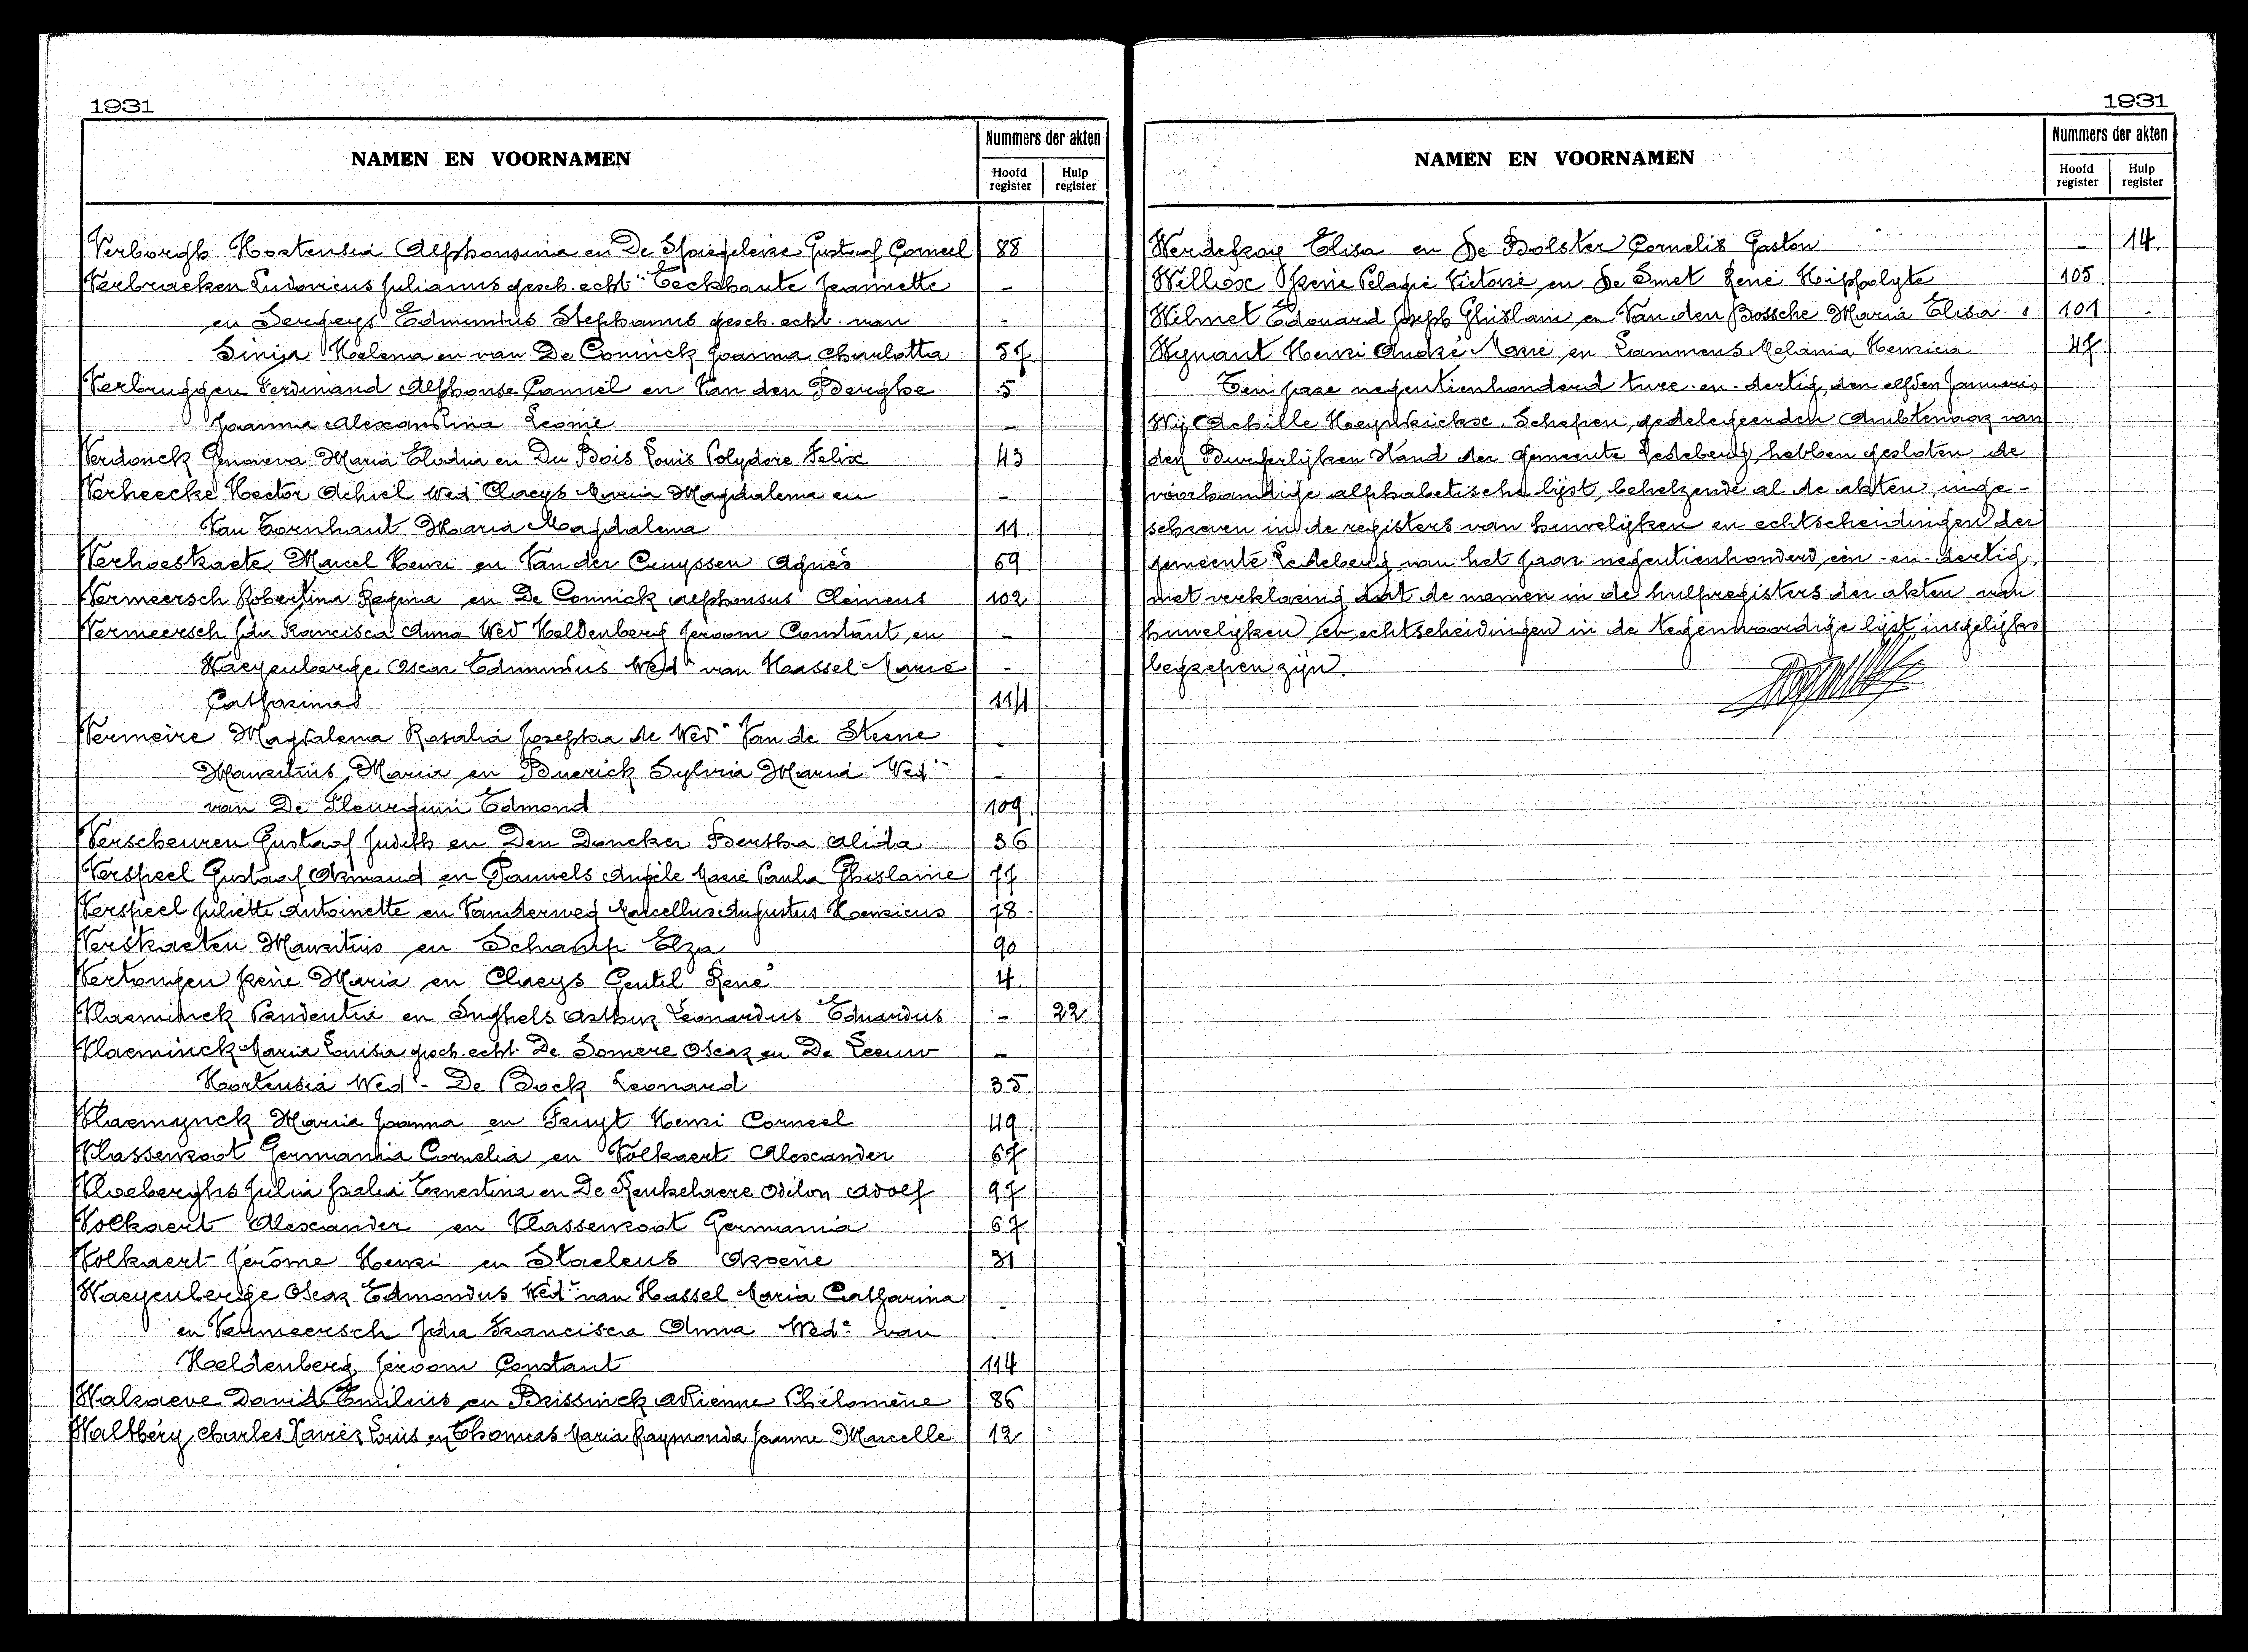 1931
NAMEN EN VOORNAMEN
Nummers der akten
Hoofd register
Hulp register
Verborgh Hortensia Alphonsina en De Spiegeleire Gustaaf Corneel 88
Verbraeken Ludovicus Julianus gesch. echt. Eeckhaute Jeannette -
en Sergeys Edmundus Stephanus gesch. echt. van -
Helena en van De Coninck Joanna Charlotta 57
Verbruggen Ferdinand Alphonse Camiel en Van den Berghe 5
Joanna Alexandrina Leonie -
Verdonck Genoveva Maria Elodia en Du Bois Louis Polydore Felix 43
Verheecke Hector Achiel Wed. Claeys Maria Magdalena en -
Van Tornhaut Maria Magdalena 11
Verhoestraete Marcel Henri en Van der Cruyssen Agnès 69
Vermeersch Robertina Regina en De Connick Alphonsus Clemens 102
Vermeersch Ida Francisca Anna Wed Heldenberg Jeroom Constant en -
Waeyenberge Oscar Edmundus Wedr van Hassel Marie -
Catharina 114
Vermeire Magdalena Rosalia Josepha de Wede Van de Steene -
Mauritius Maria en Buerick Sylvia Maria Wede -
van De Edmond 109
Verscheuren Gustaaf Judith en Den Doncker Bertha Alida 36
Verspeel Gustaaf Armand en Pauwels Angèle Marie Paula Ghislaine 77
Verspeel Juliette Antoinette en Vanderweg Marcellus Augustus Henricus 78
Verstraeten Mauritius en Schamp Elza 90
Vertongen Irène Maria en Claeys Gentil René 4
Vlaeminck Prudentia en Inghels Arthur Leonardus Eduardus - 22
Vlaeminck Maria Louisa gesch. echt. De Somere Oscar en De Leeuw -
Hortensia Wede De Bock Leonard 35
Vlaemynck Maria Joanna en Fruyt Henri Corneel 49
Vlassenroot Germania Cornelia en Volkaert Alexander 67
Vloeberghs Julia Ernestina en De Keukelaere Odilon Adolf 97
Volkaert Alexander en Vlassenroot Germania 67
Volkaert Jérôme Henri en Staelens Arsène 31
Waeyenberge Oscar Edmondus Wedr van Hassel Maria Catharina -
en Vermeersch Ida Francisca Anna Wede van
Heldenberg Jeroom Constant 114
Walraeve David Emilius en Brissinck Adrienne Philomène 86
Walthéry Charles Xavier Louis en Thomas Maria Raymonda Jeanne Marcelle 12
1931
NAMEN EN VOORNAMEN
Nummers der akten
Hoofd register
Hulp register
Werdefroy Elisa en De Bolster Cornelis Gaston - 14
Williox Irène Pelagie Victorie en De Smet René Hippolyte 105
Wilmet Edouard Joseph Ghislain en Van den Bossche Maria Elisa 101 -
Wynant Henri André Marie en Lammens Melania Henrica 47
Een jare negentienhonderd twee-en-dertig, den elfden Januari,
Wij Achille Heyndrickx, Schepen, gedelegeerden Ambtenaar van
den Burgerlijken Stand der gemeente Ledeberg, hebben gesloten de
voorhandige alphabetische lijst, behelzende al de akten inge-
schreven in de registers van huwelijken en echtscheidingen der
gemeente Ledeberg van het jaar negentienhonderd een-en-dertig,
met verklaring dat de namen in de hulpregisters der akten van
huwelijken en echtscheidingen in de tegenwoordige lijst insgelijks
begrepen zijn.